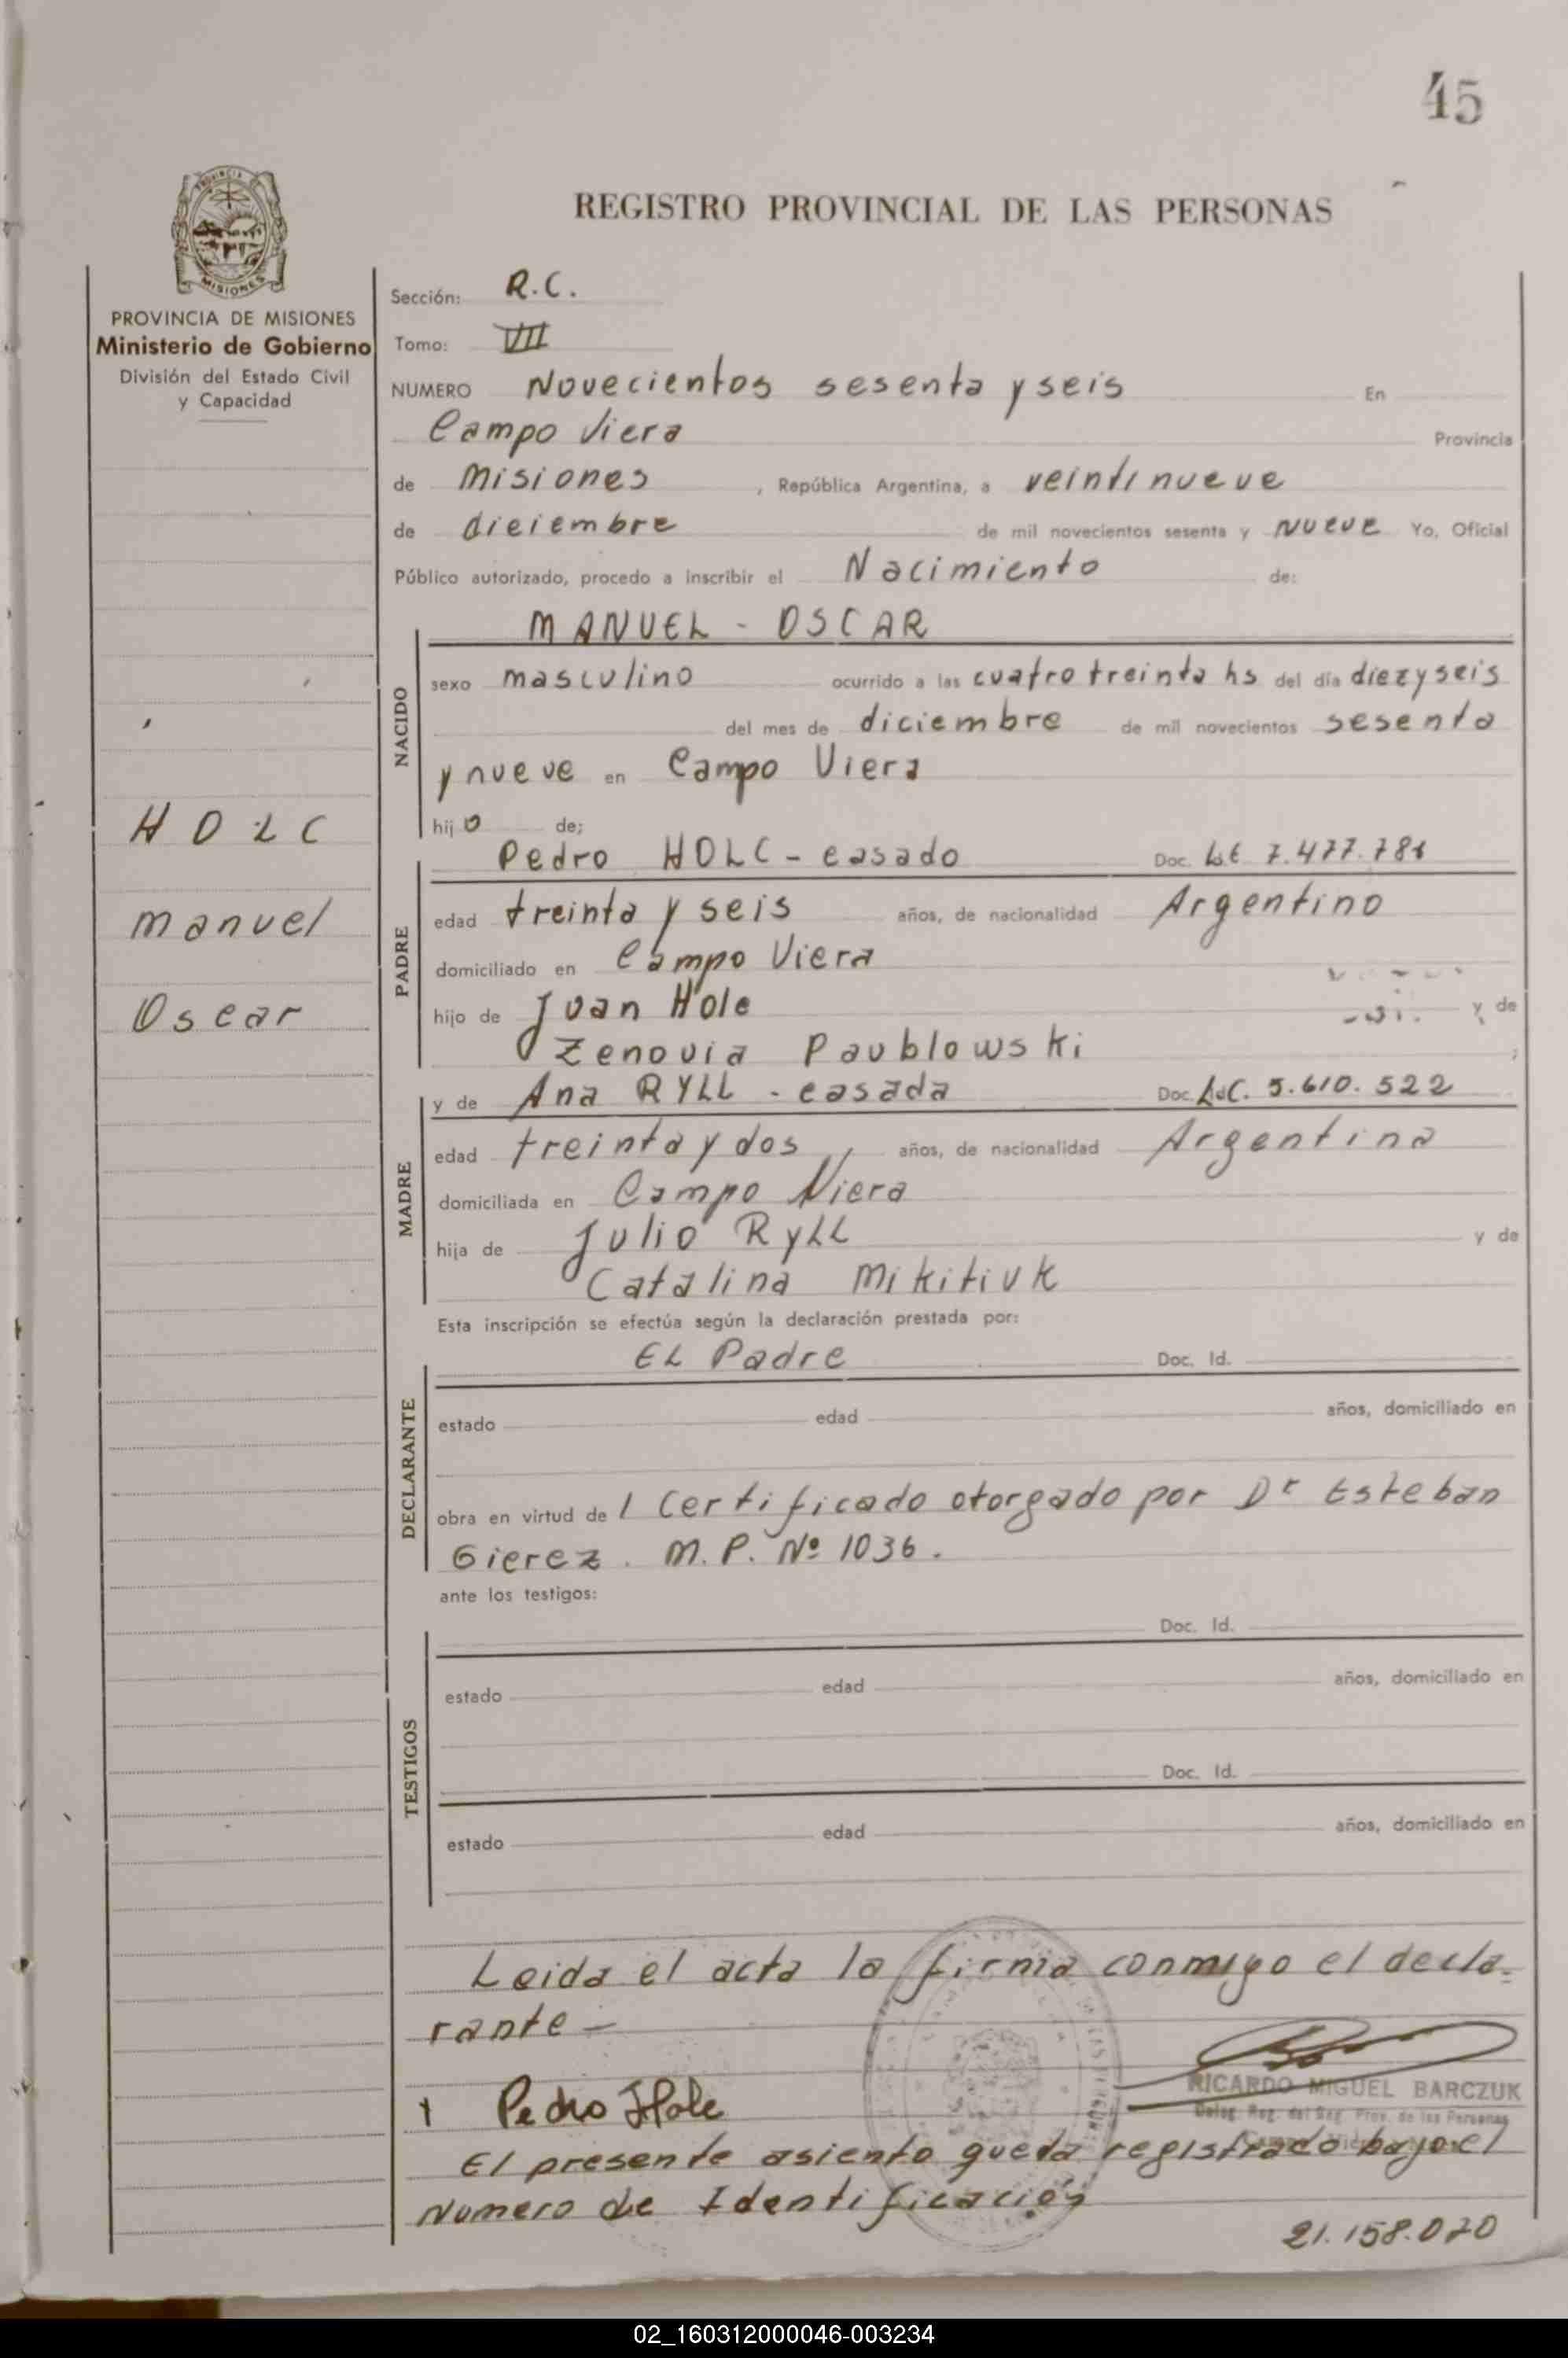 45
REGISTRO PROVINCIAL DE LAS PERSONAS
PROVINCIA
MISIONES
PROVINCIA DE MISIONES
Ministerio de Gobierno
División del Estado Civil
y Capacidad
HOLC
Manuel
Oscar
Sección: R.C.
Tomo: VII
NUMERO Novecientos sesenta y seis En
Campo Viera Provincia
de Misiones, República Argentina, a veintinueve
de diciembre de mil novecientos sesenta y nueve Yo, Oficial
Público autorizado, procedo a inscribir el Nacimiento de:
NACIDO
MANUEL - OSCAR
sexo masculino ocurrido a las cuatro treinta hs del día diez y seis
del mes de diciembre de mil novecientos sesenta
y nueve en Campo Viera
hijo de;
PADRE
Pedro HOLC - casado Doc. L.E 7.477.781
edad treinta y seis años, de nacionalidad Argentino
domiciliado en Campo Viera
hijo de Juan Holc y de
Zenovia Paublowski ;
MADRE
y de Ana RYLL - casada Doc. L.C. 5.610.522
edad treinta y dos años, de nacionalidad Argentina
domiciliada en Campo Viera
hija de Julio Ryll y de
Catalina Mikitiuk
Esta inscripción se efectúa según la declaración prestada por:
DECLARANTE
EL Padre Doc. Id.
estado edad años, domiciliado en
obra en virtud de 1 Certificado otorgado por Dr Esteban
Gierez. M.P. Nº 1036.
ante los testigos:
TESTIGOS
Doc. Id.
estado edad años, domiciliado en
Doc. Id.
estado edad años, domiciliado en
Leida el acta la firma conmigo el decla-
rante -
Pedro Holc
RICARDO MIGUEL BARCZUK
Deleg. Reg. del Reg. Prov. de las Personas
El presente asiento queda registrado bajo el
Numero de Identificación
21.158.070
02_160312000046-003234